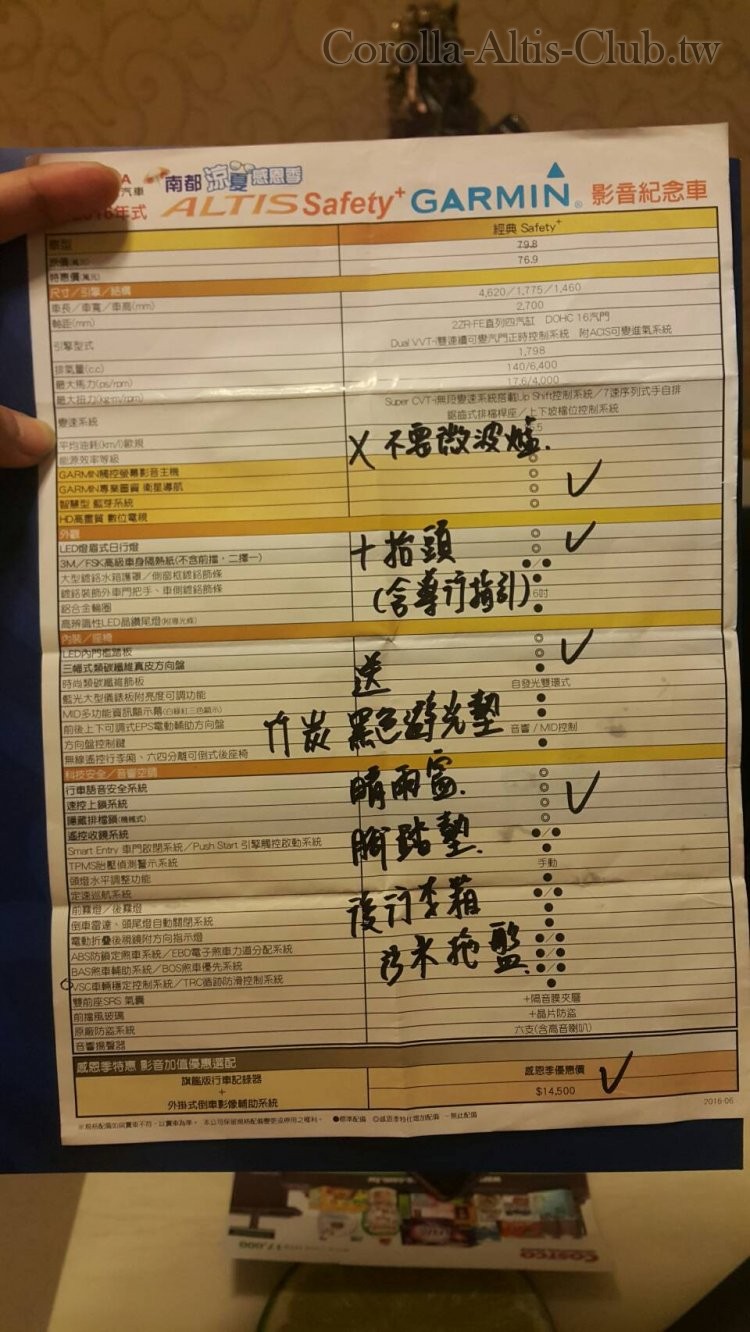 Corolla-Altis-Club.tw
南都 涼夏感恩季
ALTIS Safety+ GARMIN 影音紀念車
年式
經典 Safety+
79.8
特惠價(萬元) 76.9
尺寸／引擎／結構
車長／車寬／車高(mm) 4,620／1,775／1,460
軸距(mm) 2,700
引擎型式 2ZR-FE直列四汽缸 DOHC 16汽門
Dual VVT-i雙連續可變汽門正時控制系統 附ACIS可變進氣系統
排氣量(c.c) 1,798
最大馬力(ps/rpm) 140/6,400
最大扭力(kg-m/rpm) 17.6/4,000
變速系統 Super CVT-i無段變速系統搭載Up Shift控制系統／7速序列式手自排
鋸齒式排檔桿座／上下坡檔位控制系統
平均油耗(km/l)歐規
能源效率等級
X 不要微波爐.
GARMIN觸控螢幕影音主機 ◎
GARMIN專業圖資 衛星導航 ◎
智慧型 藍芽系統 ◎
HD高畫質 數位電視
外觀
LED燈眉式日行燈 ◎
3M／FSK高級車身隔熱紙(不含前擋，二擇一) ◎
十抬頭
大型鍍鉻水箱護罩／側窗框鍍鉻飾條 ●／●
鍍鉻裝飾外車門把手、車側鍍鉻飾條
鋁合金輪圈 6吋
(含導行指引)
高辨識性LED晶鑽尾燈(附導光條)
內裝／座椅
LED內門檻踏板 ◎
三幅式類碳纖維真皮方向盤 ◎
時尚類碳纖維飾板 ●
送
藍光大型儀錶板附亮度可調功能 自發光雙環式
MID多功能資訊顯示幕(白綠紅三色顯示) ●
前後上下可調式EPS電動輔助方向盤 ●
竹炭 黑色避光墊
方向盤控制鍵 音響／MID控制
無線遙控行李廂、六四分離可倒式後座椅 ●
科技安全／音響空調
行車語音安全系統 ◎
速控上鎖系統 ◎
晴雨窗.
隱藏排檔鎖(機械式) ◎
遙控收鏡系統 ◎
Smart Entry 車門啟閉系統／Push Start 引擎觸控啟動系統 ●／●
腳踏墊.
TPMS胎壓偵測警示系統 ●
頭燈水平調整功能 手動
定速巡航系統 ●
前霧燈／後霧燈 ●／●
倒車雷達、頭尾燈自動關閉系統 ●
後行李箱
電動折疊後視鏡附方向指示燈 ●
ABS防鎖定煞車系統／EBD電子煞車力道分配系統 ●／●
BAS煞車輔助系統／BOS煞車優先系統 ●／●
防水拖盤.
VSC車輛穩定控制系統／TRC循跡防滑控制系統 ●／●
雙前座SRS 氣囊 ●
前擋風玻璃 +隔音膜夾層
原廠防盜系統 +晶片防盜
音響揚聲器 六支(含高音喇叭)
感恩季特惠 影音加值優惠選配 感恩季優惠價
旗艦版行車記錄器
+
外掛式倒車影像輔助系統
$14,500
※規格配備如與實車不符，以實車為準。 本公司保留規格配備變更或停用之權利。 ●標準配備 ◎感恩季特仕增加配備 －無此配備
2016-06
COSTCO